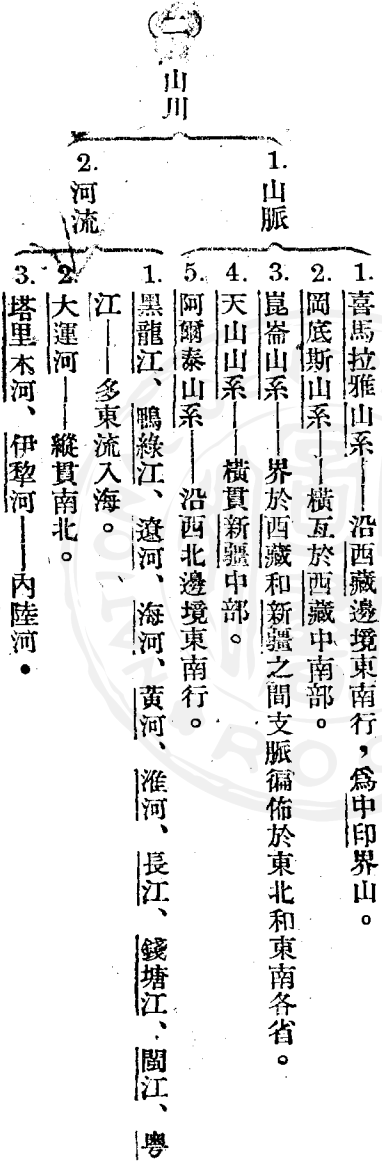 (二)
山川
1.山脈
1.喜馬拉雅山系——沿西藏邊境東南行，爲中印界山。
2.岡底斯山系——橫亙於西藏中南部。
3.崑崙山系——界於西藏和新疆之間支脈徧佈於東北和東南各省。
4.天山山系——橫貫新疆中部。
5.阿爾泰山系——沿西北邊境東南行。
2.河流
1.黑龍江、鴨綠江、遼河、海河、黃河、淮河、長江、錢塘江、閩江、粵
江——多東流入海。
2.大運河——縱貫南北。
3.塔里木河、伊犂河——內陸河。